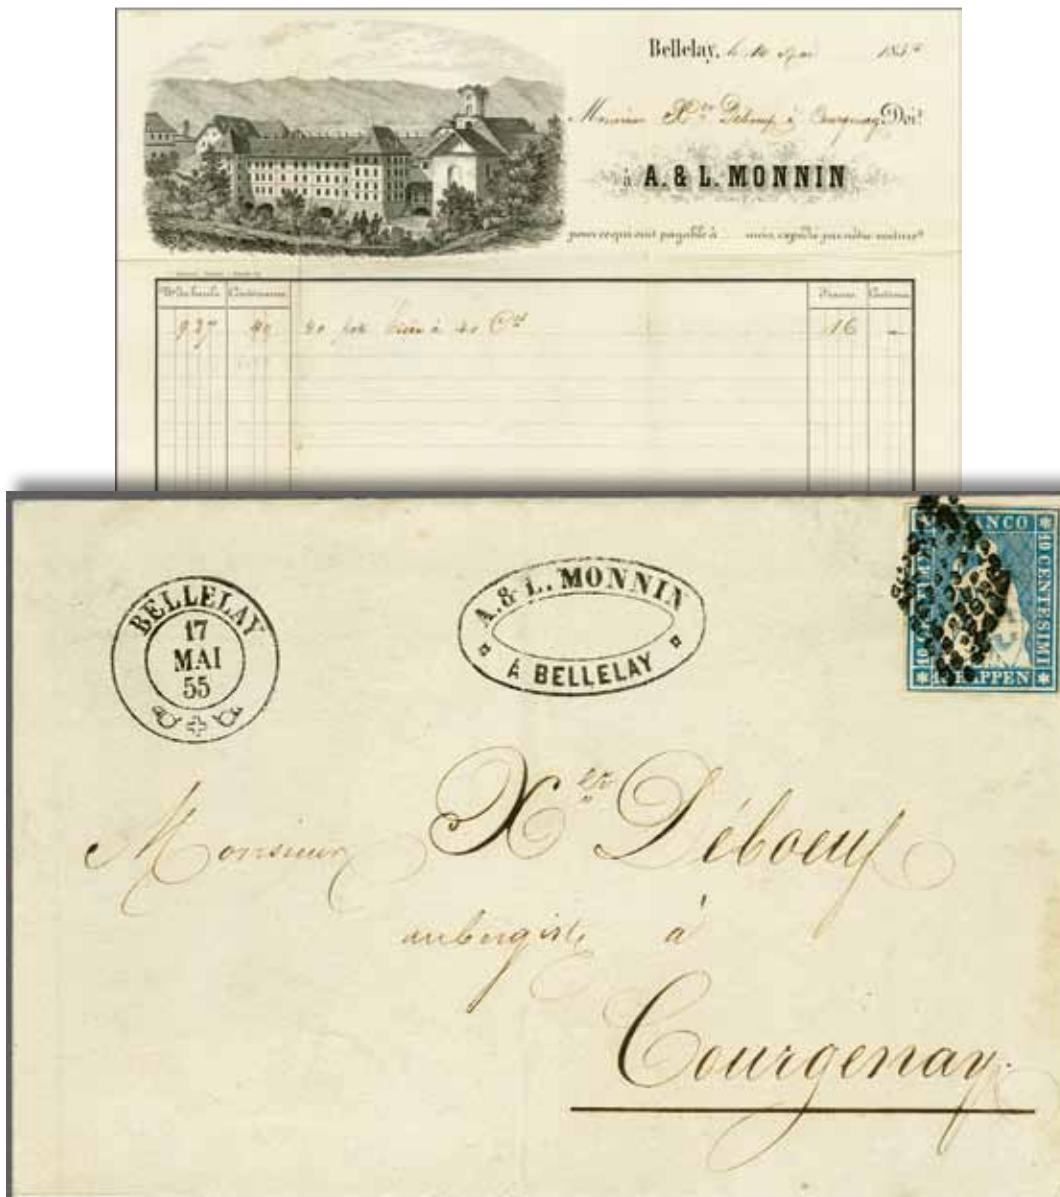 Bellelay, le 185
Monsieur Xer Deboeuf à Courgenay Doit
à A. & L. MONNIN
pour ce qui suit payable à mois, expédié par nôtre voiture
No du fusts. Contenance Francs Centimes
937 40 40 pots bière à 40 Cts 16 —
BELLELAY
17
MAI
55
A. & L. MONNIN
À BELLELAY
FRANCO
10 CENTESIMI
RAPPEN
Monsieur Xer Déboeuf
aubergiste à
Courgenay.